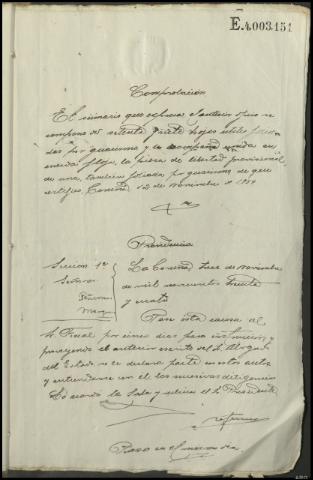 E.4.003.151
Comprobacion
El sumario que expresa el anterior oficio se
compone de setenta y siete hojas utiles folia
das por guarismo y le acompaña unida en
cuerda floja, la pieza de libertad provisional
de una, tambien foliada por guarismo de que
certifico. Coruña 12 de noviembre de 1934
Providencia
Seccion 1ª
Señores
La Coruña trece de noviembre
de mil novecientos treinta
y cuatro
Pase esta causa al
Sr. Fiscal por cinco dias para instruccion y
proveyendo al anterior escrito del Sr. Abogado
del Estado se le declara parte en estos autos
y entiendanse con el las sucesivas diligencias
Lo acordo la Sala y rubrica el Sr. Presidente
Paso en el mismo dia